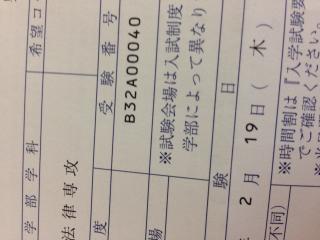 学部学科
希望コ
法律専攻
受験番号
B32A00040
度
※試験会場は入試制度
学部によって異なり
場
験 日
2月 19日(木)
※時間割は『入学試験要
でご確認ください。
不同)